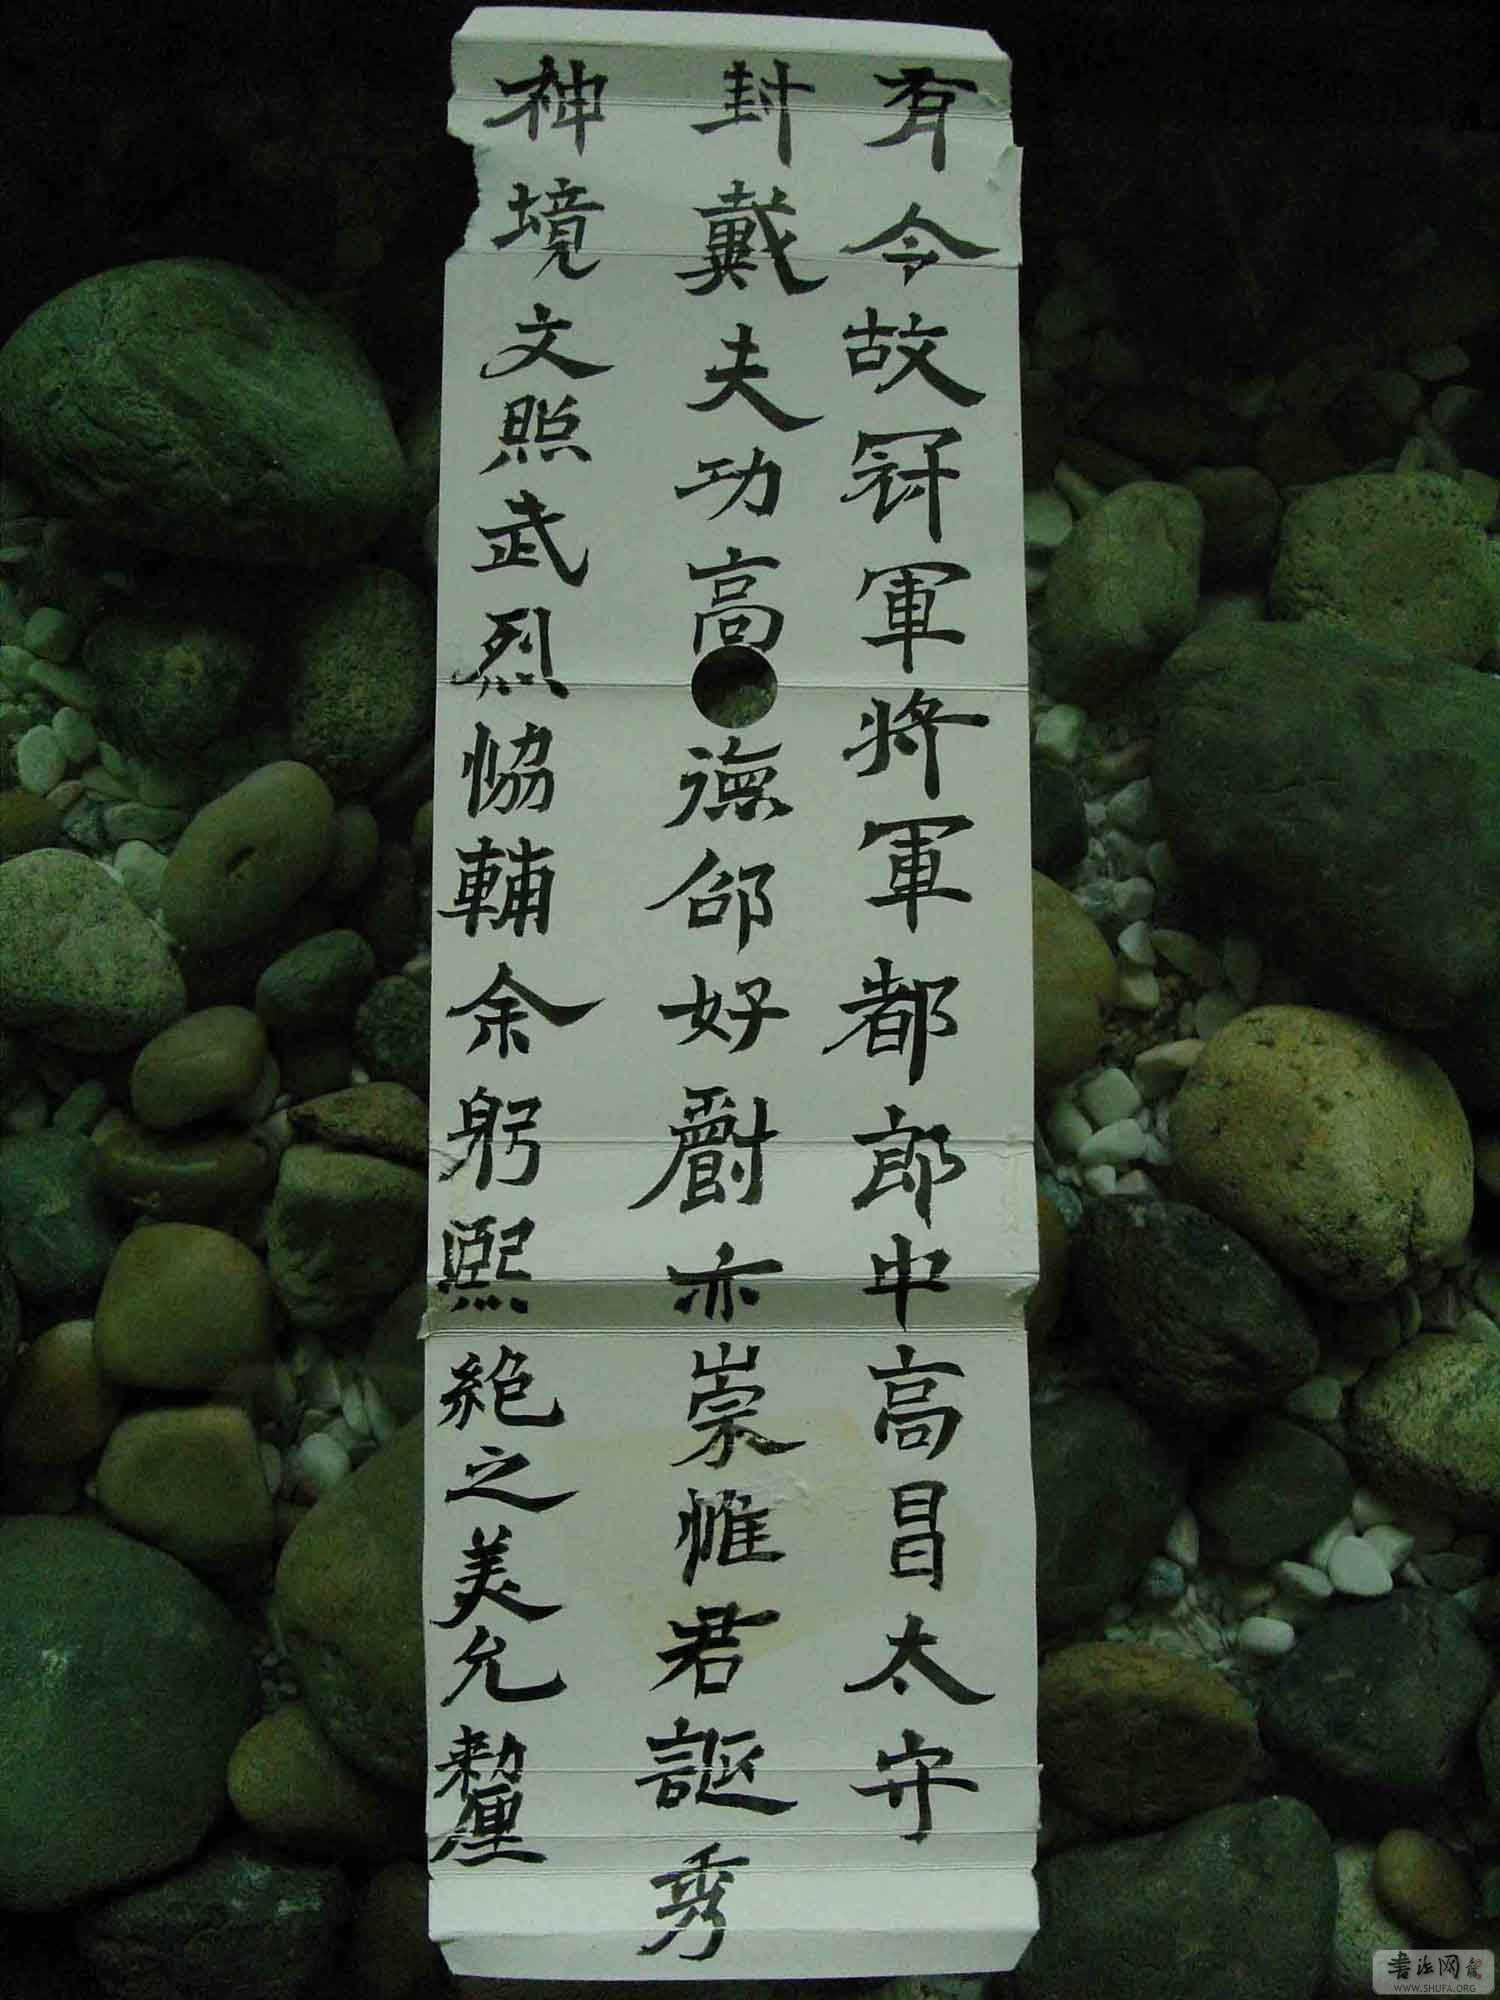 有令故冠軍將軍都郎中高昌太守
封戴夫功高德邵好爵亦崇惟君誕秀
神境文照武烈協輔余躬熙絕之美允釐
書法网
WWW.SHUFA.ORG